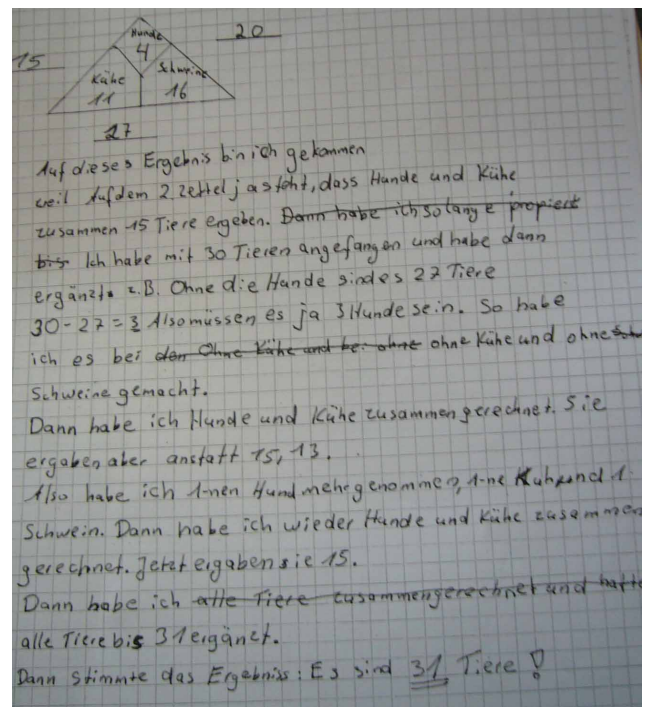 Hunde
20
4
15
Kühe
Schweine
11
16
27
Auf dieses Ergebnis bin ich gekommen
weil Auf dem 2. Zettel ja steht, dass Hunde und Kühe
zusammen 15 Tiere ergeben. Dann habe ich so lange propiert
bis Ich habe mit 30 Tieren angefangen und habe dann
ergänzt. z.B. Ohne die Hunde sind es 27 Tiere
30-27=3 Also müssen es ja 3 Hunde sein. So habe
ich es bei den Ohne Kühe und bei ohne ohne Kühe und ohne
Schweine gemacht.
Dann habe ich Hunde und Kühe zusammen gerechnet. Sie
ergaben aber anstatt 15, 13.
Also habe ich 1-nen Hund mehr genommen, 1-ne Kuh und 1
Schwein. Dann habe ich wieder Hunde und Kühe zusammen
gerechnet. Jetzt ergaben sie 15.
Dann habe ich alle Tiere zusammengerechnet und hatte
alle Tiere bis 31 ergänzt.
Dann stimmte das Ergebniss: Es sind 31 Tiere!